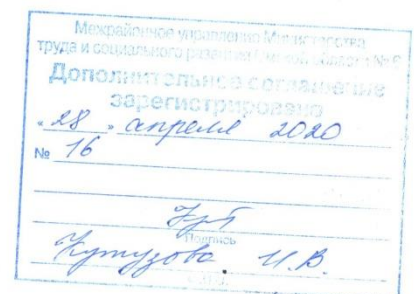 Межрайонное управление Министерства
труда и социального развития Омской области №
Дополнительное соглашение
зарегистрировано
"28" апреля 2020
№ 16
Подпись
Кутузова И.В.